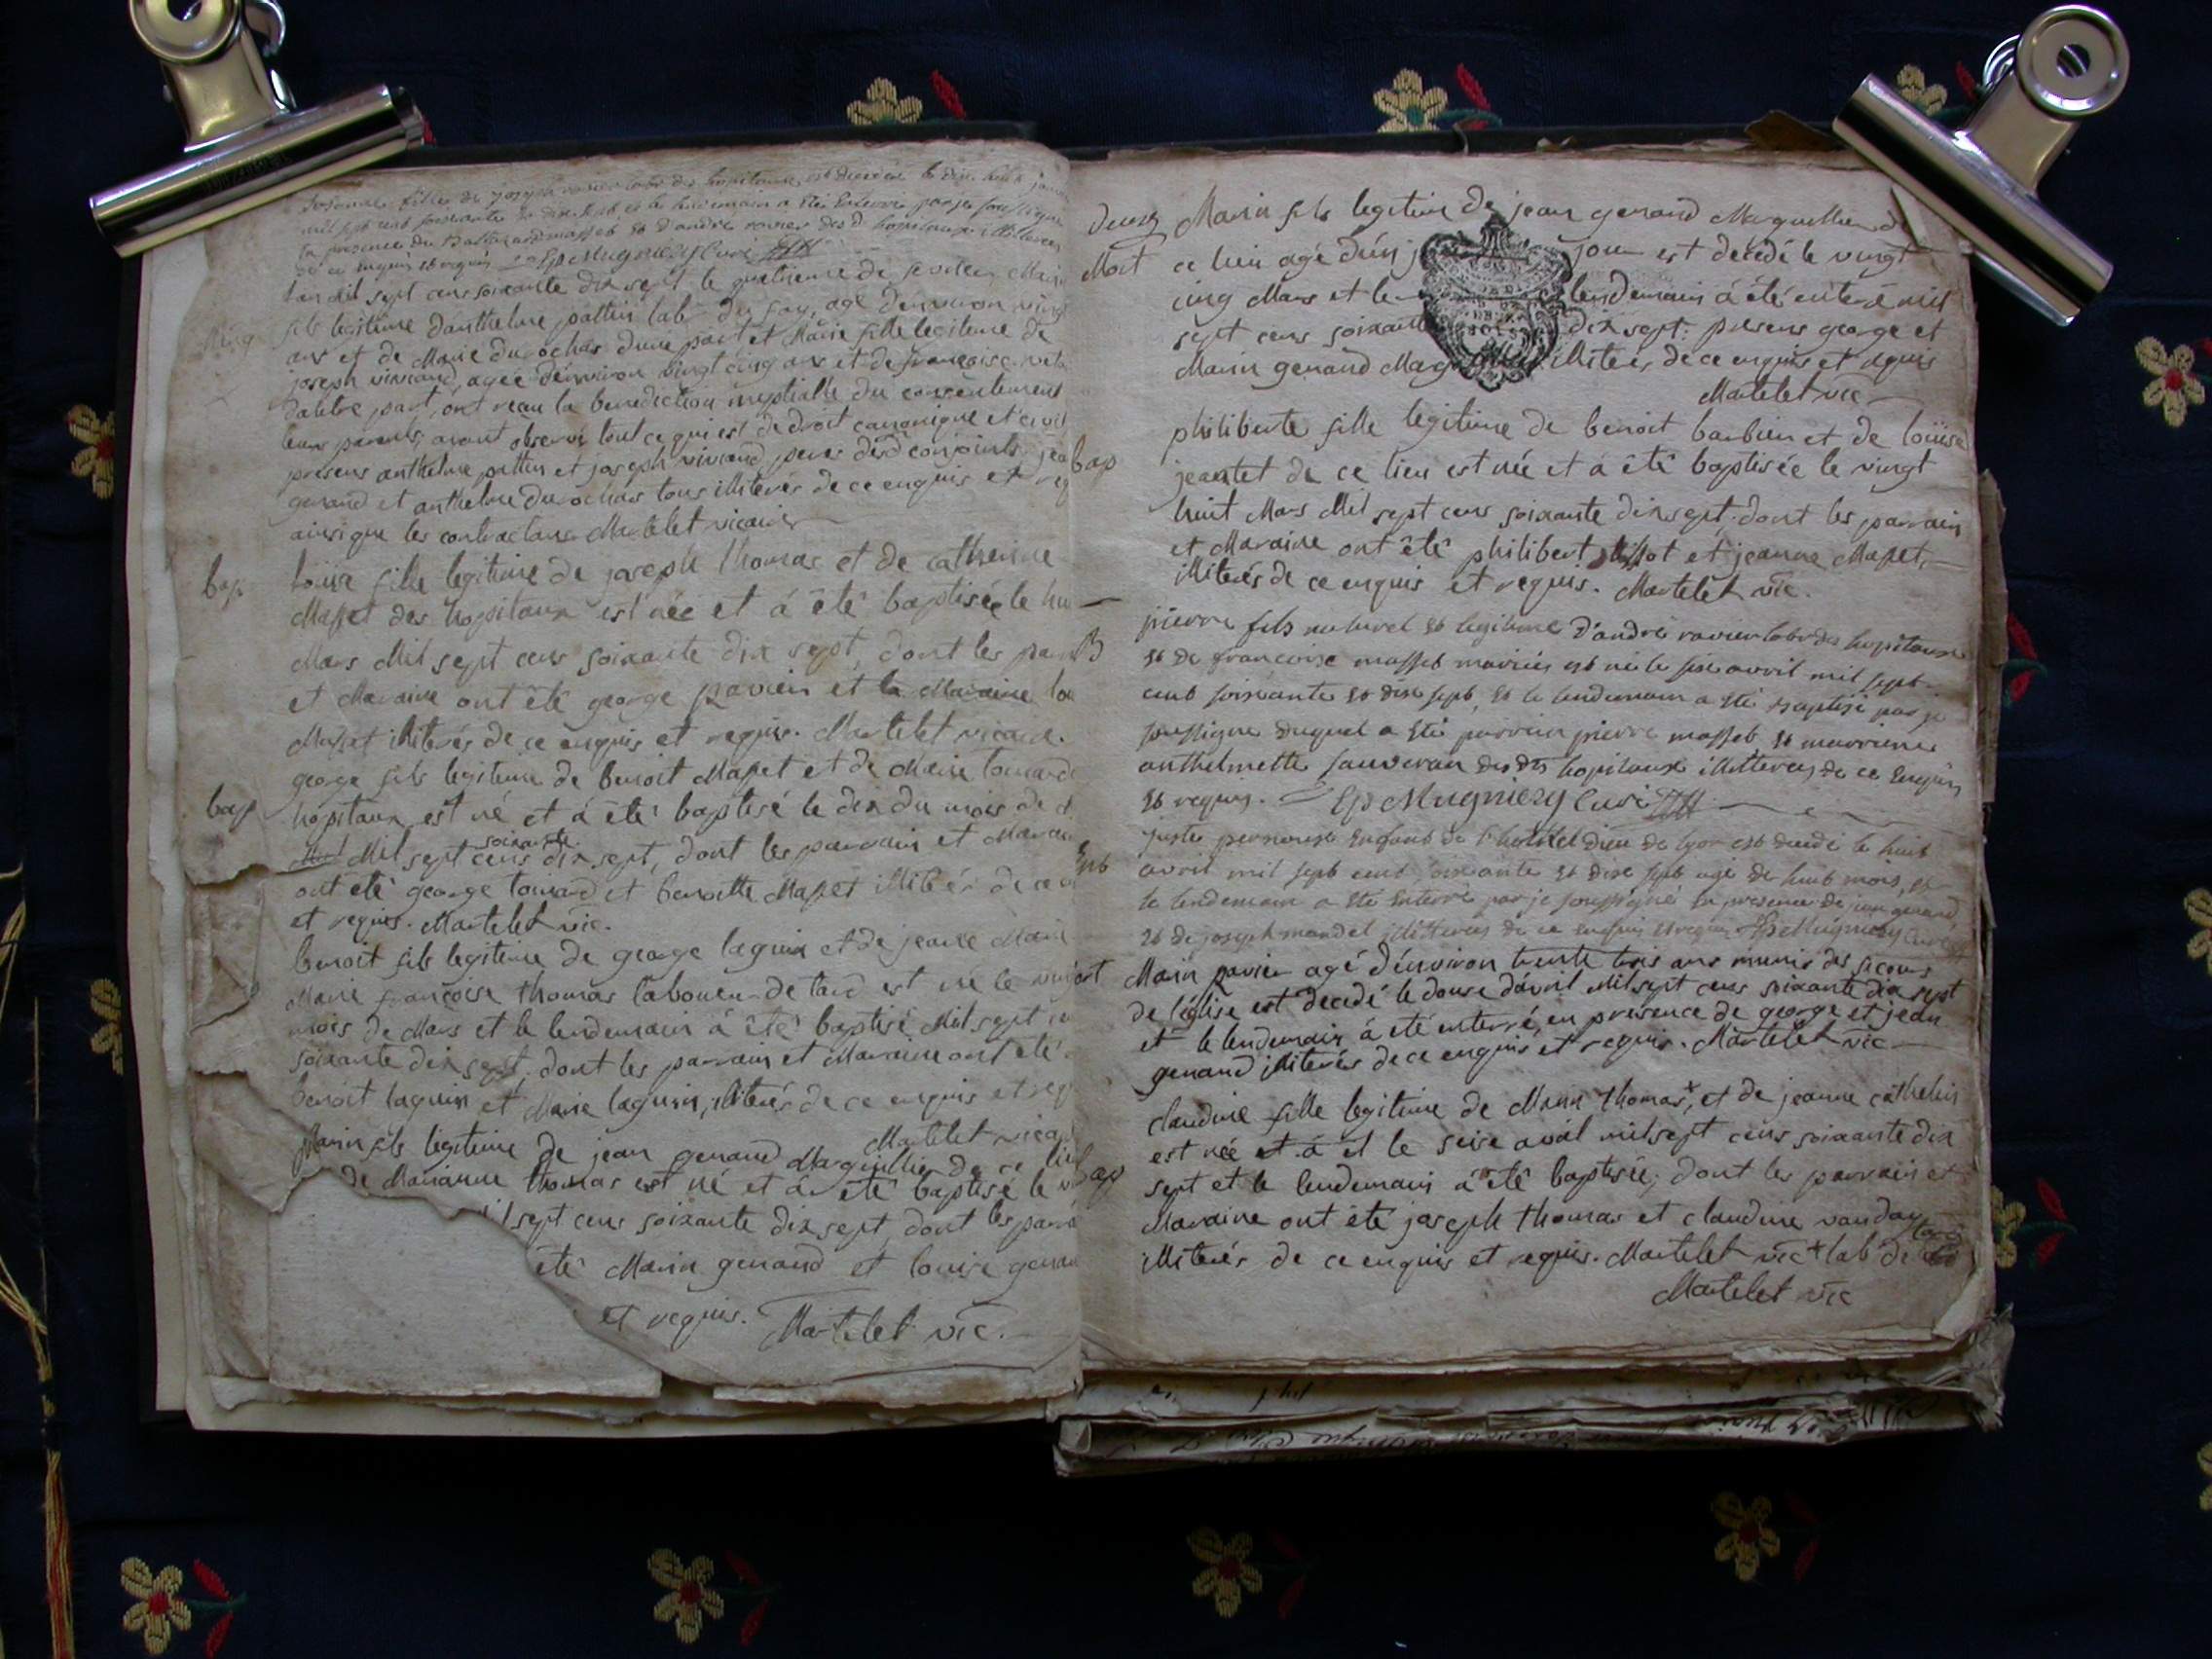 fille de joseph ravier labr des hopitaux est decedée le dix huit
mil sept cent soixante et dix sept et le lendemain a été enterrée par je soussigné
en presence de masset et d'andre ravier des d hopitaux illiteres
de ce enquis et requis Mugniezy Curé
Lan Mil sept cens soixante dix sept le quatrieme de fevrier Marin
fils legitime d'anthelme pattin lab du fay, agé denviron vingt
ans et de Marie durochas d'une part et Marie fille legitime de
joseph viviand, agée denviron vingt cinq ans et de francoise
d'autre part, ont recu la benediction nuptialle du consentement
leurs parents, ayant observé tout ce qui est de droit canonique et civil
presens anthelme pattin et joseph viviand peres desd conjoints,
genand et anthelme durochas tous illiterés de ce enquis et
ainsi que les contractans Martelet vicaire
bap
loüise fille legitime de joseph thomas et de catherine
Masset des hopitaux est née et á été baptisée le
Mars Mil sept cens soixante dix sept, dont les
et Maraine ont été george pavier et la Maraine
Masset illiterés de ce enquis et requis. Martelet vicaire.
george fils legitime de benoit Masset et de Marie
bap
hopitaux est né et á été baptisé le dix du mois de
soixante
Mil sept cens dix sept, dont les parrain et
ont été george et benoitte Masset illiterés de ce
et requis. Martelet vic.
benoit fils legitime de george laguin et de jeanne Marie
Marie francoise thomas laboureur de tard est né le
mois de Mars et le lendemain á été baptisé Mil sept
soixante dix sept, dont les parrain et Maraine ont été
benoit laguin et Marie laguin, illiterés de ce enquis et
Martelet
Marin fils legitime de jean genand Marguillier de ce lieu
de Marianne thomas est né et á été baptisé le
sept cens soixante dix sept, dont les
été Marin genand et louise
et requis. Martelet vic.
Marin fils legitime de jean genand Marguillier d
Mort
ce lieu agé d'un jour est decedé le vingt
cinq Mars et le lendemain á été enterré mil
sept cens soixante dix sept: presens george et
Marin genand illiterés de ce enquis et requis
Martelet vic
philiberte fille legitime de benoit barbier et de loüise
bap
jeantet de ce lieu est née et á été baptisée le vingt
huit Mars Mil sept cens soixante dix sept: dont les parrain
et Maraine ont été philibert et jeanne Masset,
illiterés de ce enquis et requis. Martelet vic.
B
pierre fils naturel et legitime d'andré ravier labr des hopitaux
et de francoise masset mariés est né le six avril mil sept
cent soixante et dix sept, et le lendemain a été baptisé par je
soussigné duquel a été parrain pierre masset et marraine
anthelmette sauveran des dts hopitaux illitteres de ce enquis
et requis. Mugniezy Curé
juste enfant de l'hottel dieu de lyon est decedé le huit
avril mil sept cent soixante et dix sept agé de huit mois, et
le lendemain a été enterré par je soussigné en presence de jean genand
et de joseph mandel illitteres de ce enquis et requis Mugniezy Curé
Marin pavier agé d'environ trente trois ans munis des secours
de l'église est decedé le douze d'avril Mil sept cens soixante dix sept
et le lendemain á été enterré, en presence de george et jean
genand illiterés de ce enquis et requis. Martelet vic
claudine fille legitime de Marin thomas+, et de jeanne cathelin
est née et á et le seise avril mil sept cens soixante dix
bap
sept et le lendemain á été baptisée; dont les parrain et
Maraine ont été joseph thomas et claudine vanday
illiterés de ce enquis et requis. Martelet vic + lab de tard
Martelet vic